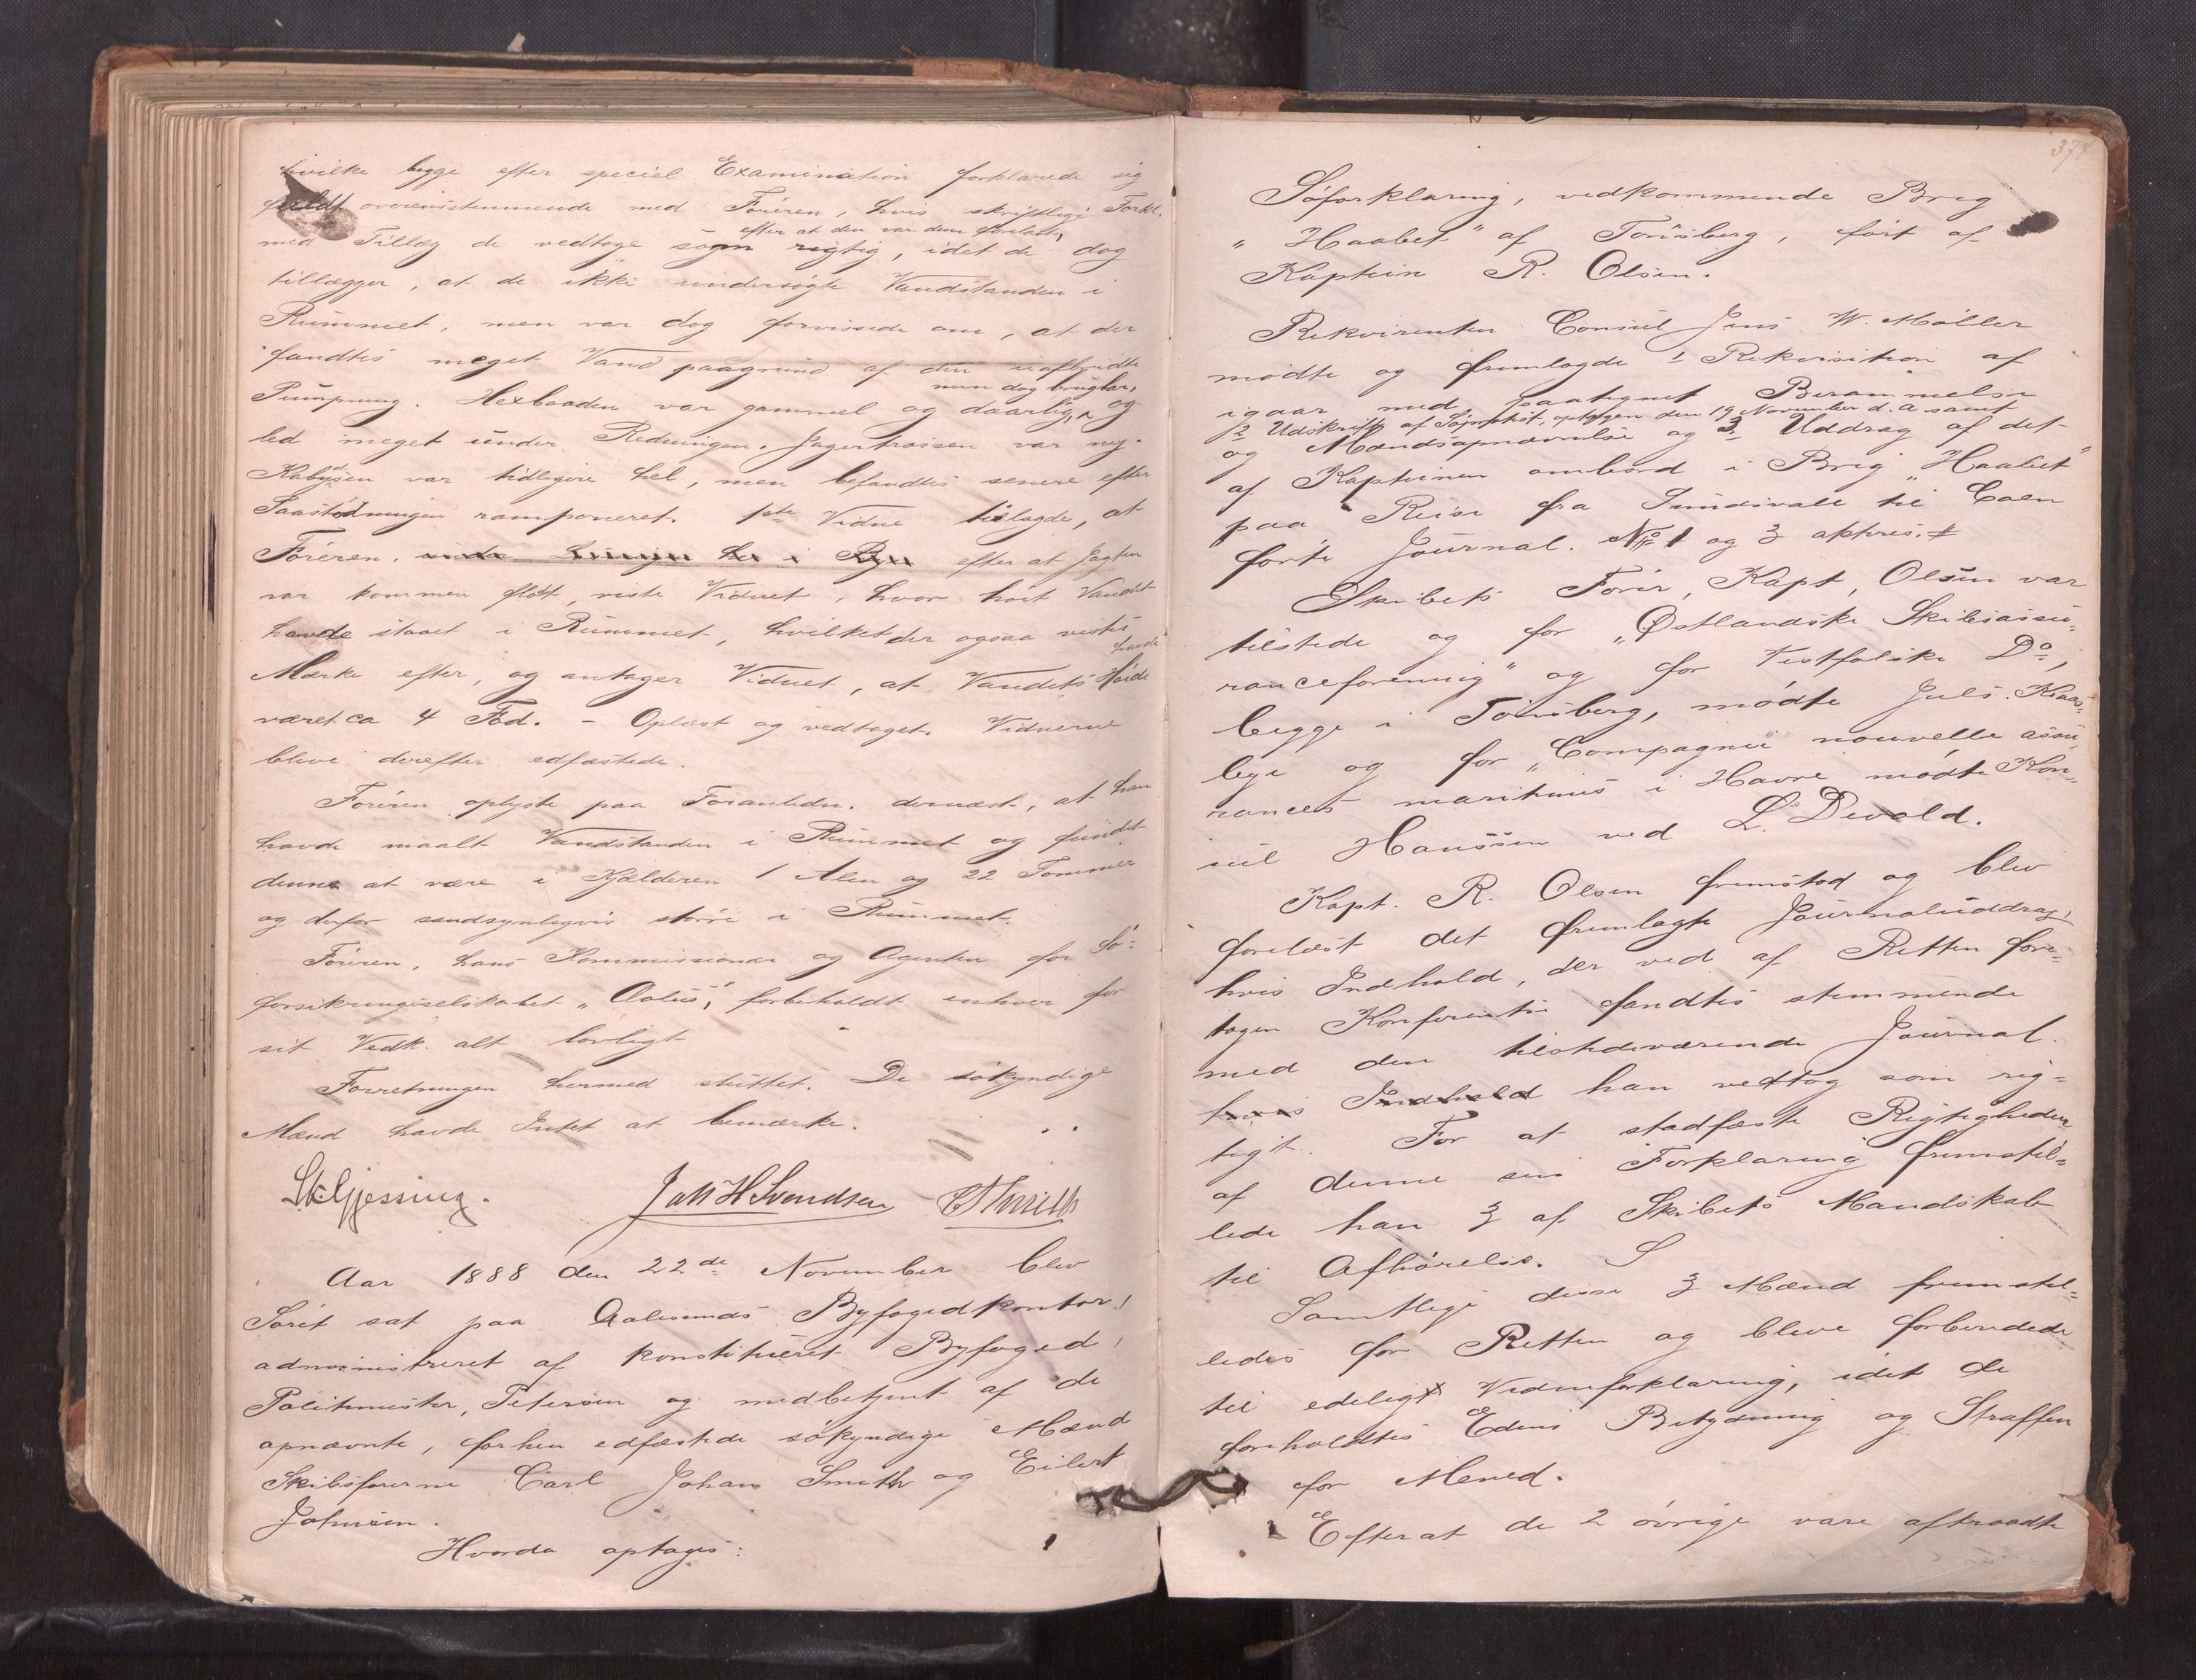 hvilke begge efter speciel Examination forklarede sig
fuldt overensstemmende med Føreren, hvis skriftlige Forkl.
efter at den var dem forelæst,
med Tillæg de vedtoge som rigtig, idet de dog
tillægger, at de ikke undersøgte Vandstanden i
Rummet, men var dog forvissede om, at der
fandtes meget Vand paagrund af den uafbrudte
men dog brugbar,
Pumpning. Hexbaaden var gammel og daarlig, og
led meget under Redningen. Jagertrossen var ny.
Kabysen var tidligere hel, men befandtes senere efter
Paastødningen ramponeret. 1ste Vidne tillagde, at
Føreren, efter at Jagten
var kommen flot, viste Vidnet, hvor høit Vandet
havde staaet i Rummet, hvilket der ogsaa vistes
havde
Mærke efter, og antager Vidnet, at Vandets Høide
været ca 4 Fod. - Oplæst og vedtaget. Vidnerne
bleve derefter edfæstede.
Føreren oplyste paa Foranledn. dernæst, at han
havde maalt Vandstanden i Rummet og fundet
denne at være i Kjælderen 1 Alen og 22 Tommer
og derfor sandsynligvis større i Rummet.
Føreren, hans Kommissionær og Agenten for Sø-
forsikringsselskabet "Æolus", forbeholdt enhver for
sit Vedk. alt lovligt
Forretningen hermed sluttet. De søkyndige
Mænd havde Intet at bemærke.
SkGjessing. Jatt H Svendsen CJSmith
Aar 1888 den 22de November blev
Søret sat paa Aalesunds Byfogedkontor,
administreret af konstitueret Byfoged,
Politimester, Petersen og medbetjent af de
opnævnte, forhen edfæstede søkyndige Mænd
Skibsførerne Carl Johan Smith og Eilert
Johnsen.
Hvorda optages:
Søforklaring, vedkommende Brig
"Haabet" af Tønsberg, ført af
Kaptein R. Olsen.
Rekvirenten Consul Jens W. Møller
mødte og fremlagde 1 Rekvisition af
igaar med paategnet Berammelse
2 Udskrift af Søprotest, optagen den 19 November d. A samt
og Mændsopnævnelse og 3 Uddrag af det
af Kapteinen ombord i Brig "Haabet"
paa Reise fra Sundsvall til Caen
førte Journal. No 1 og 3 aktres. #
Skibets Fører, Kapt, Olsen var
tilstede og for "Østlandske Skibsassu-
ranceforening" og for Vestfolske Do,
begge i Tønsberg, mødte Juls. Klaas-
lege og for "Compagnie nouvelle assu-
rances maritimes i Havre mødte Kon-
sul Hanssen ved L. Devold.
Kapt. R. Olsen fremstod og blev
forelæst det fremlagte Journaluddrag,
hvis Indhold, der ved af Retten fore-
tagen Konferentse fandtes stemmende
med den tilstedeværende Journal.
hvis Indhold han vedtog som rig-
tigt. For at stadfæste Rigtigheden
af denne sin Forklaring fremstil-
lede han 3 af Skibets Mandskab
til Afhørelse.
Samtlige disse 3 Mænd fremstil-
ledes for Retten og bleve forberedede
til edeligt Vidneforklaring, idet de
foreholdtes Edens Betydning og Straffen
for Mened.
Efterat de 2 øvrige vare aftraadte